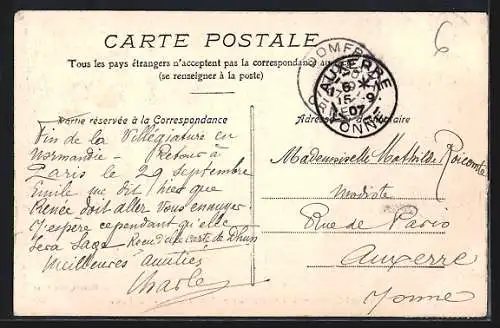 6
CARTE POSTALE
Tous les pays étrangers n'acceptent pas la correspondance au
(se renseigner à la poste)
DOMFR
AUXERRE
6 *
15 9
07
YONNE
Partie réservée à la Correspondance
Adresse du destinataire
Fin de la Villégiature en
Normandie - Retour à
Paris le 29 septembre
Emile me dit hier que
Renée doit aller vous ennuyer
J'espère cependant qu'elle
sera sage Reçu d'elle carte de Dhuin
Meilleures amitiés
Charles
Mademoiselle Mathilde
Modiste
Rue de Paris
Auxerre
Yonne